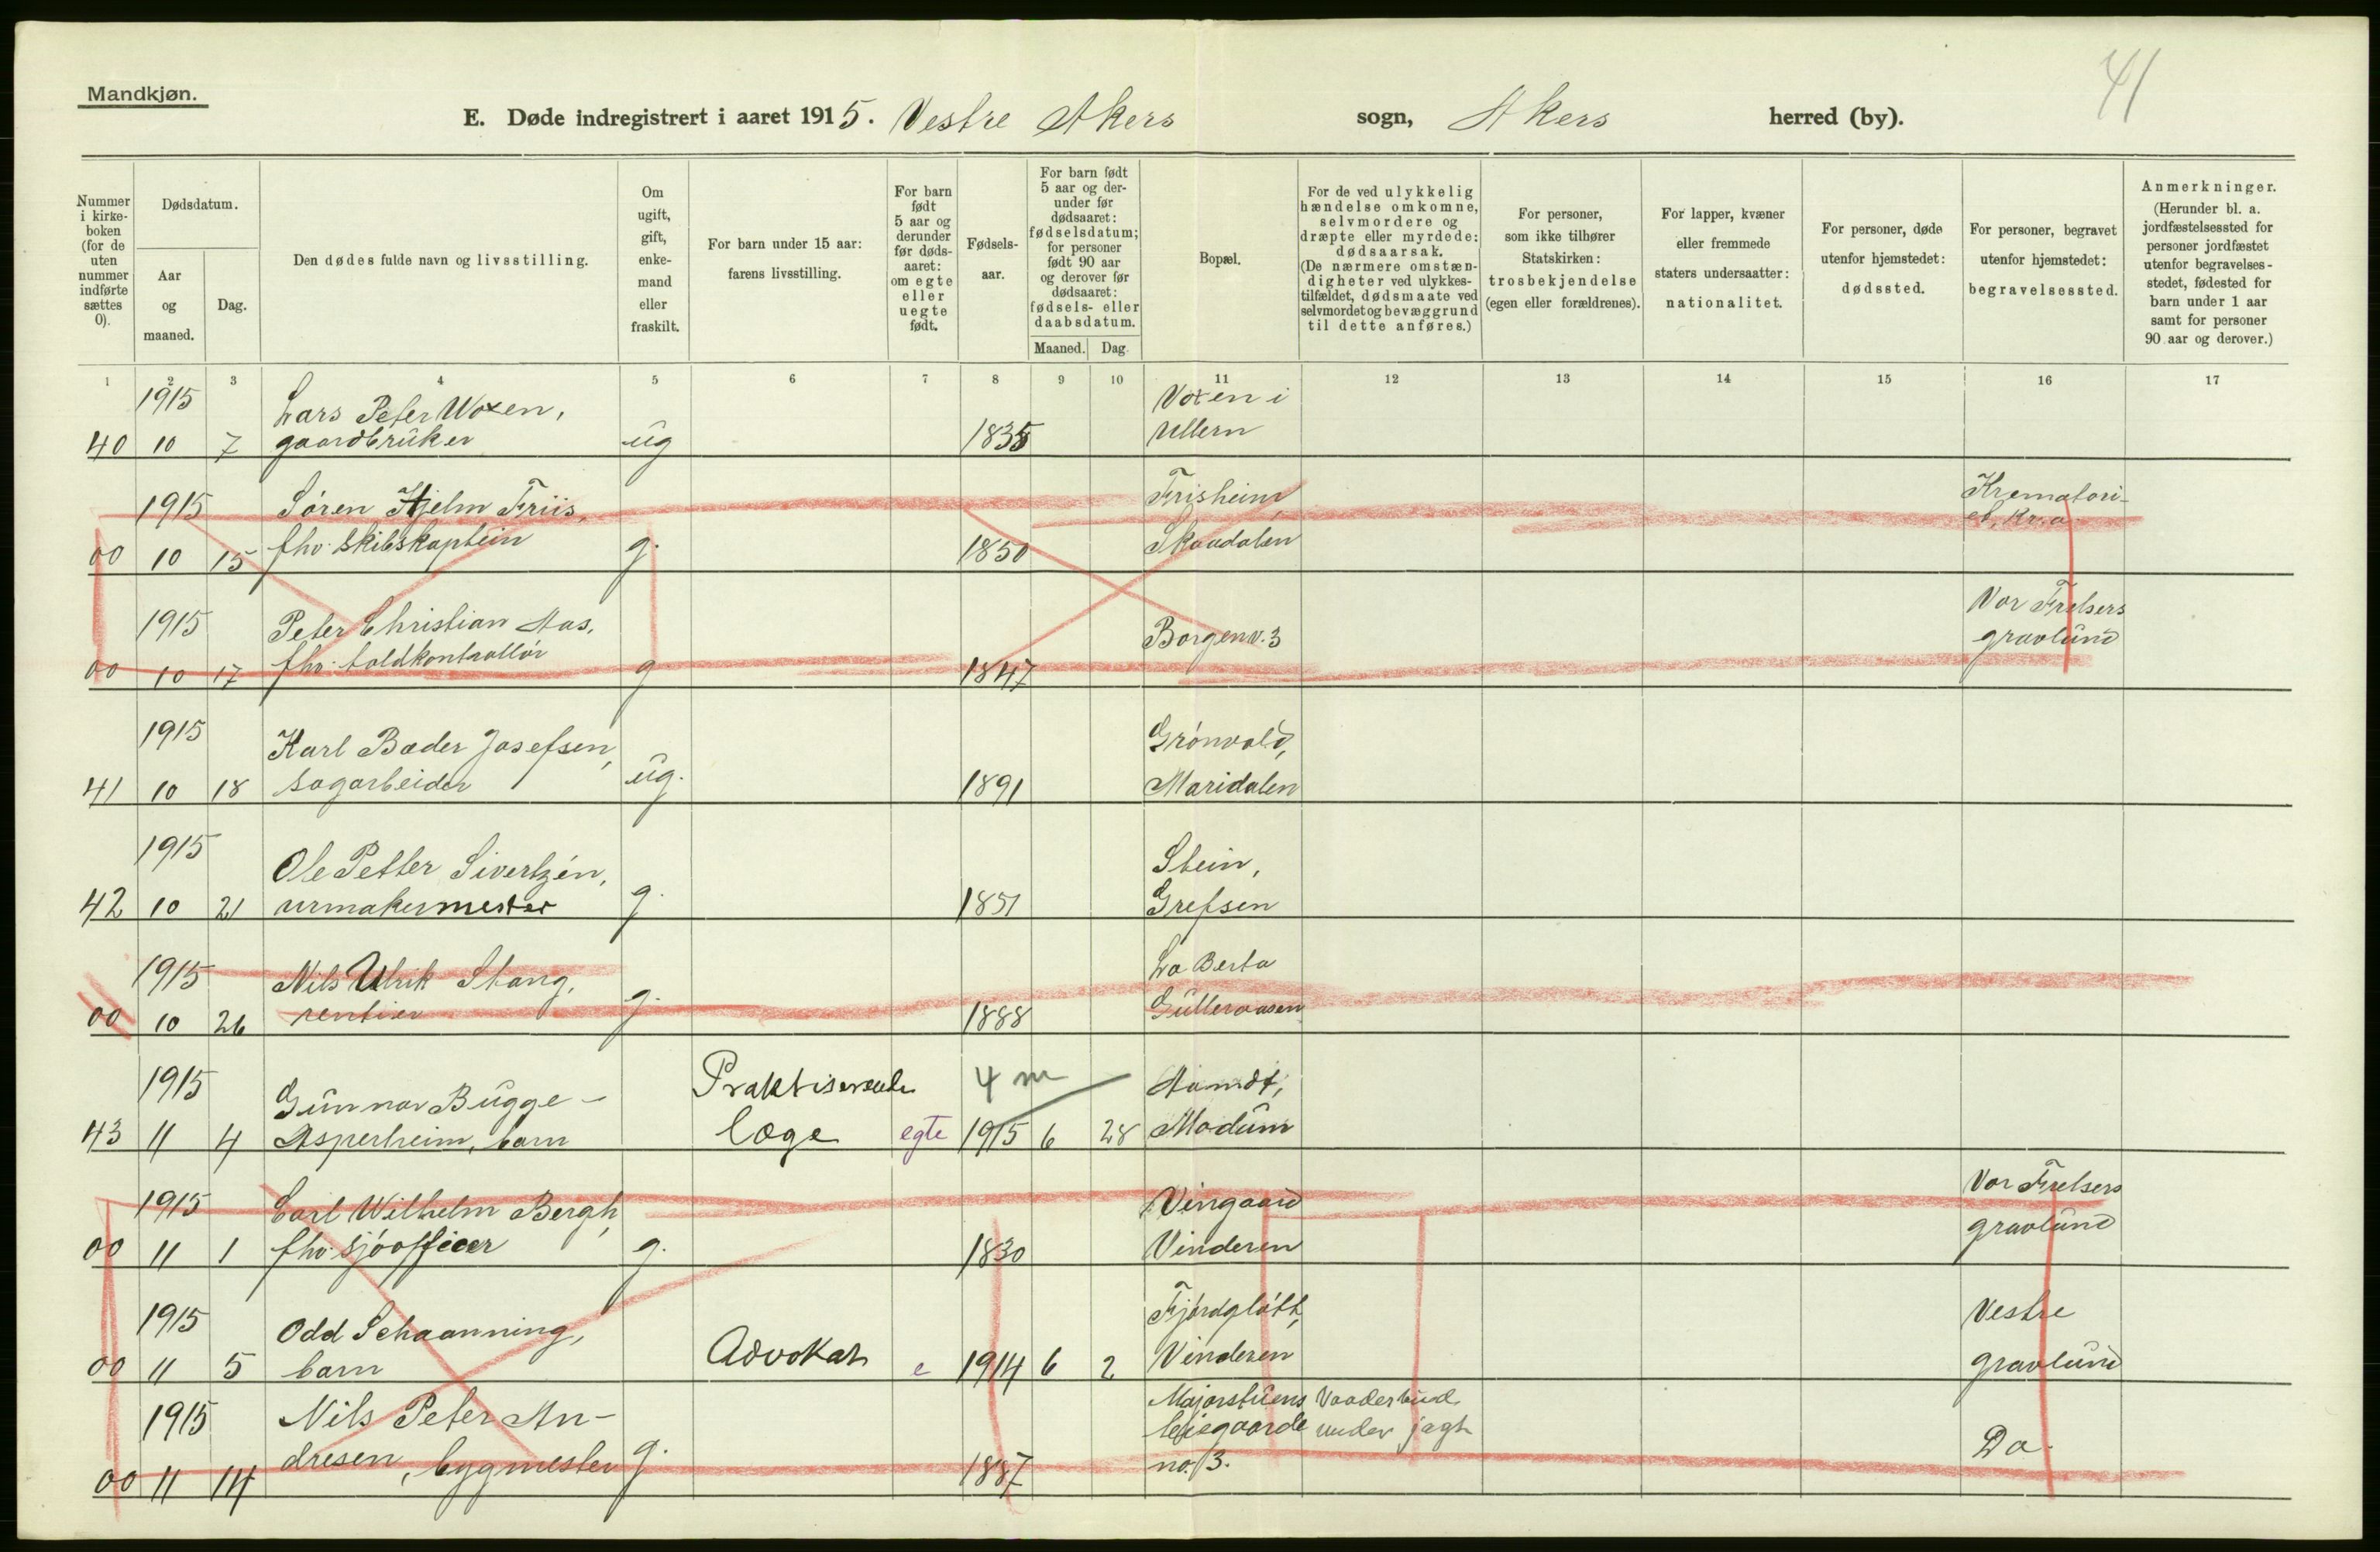 Mandkjøn.
41
E. Døde indregistrert i aaret 1915. Vestre Akers sogn, Akers herred (by).
Nummer i kirkeboken (for de uten nummer indførte sættes 0).
Dødsdatum.
Aar og maaned.
Dag.
Den dødes fulde navn og livsstilling.
Om ugift, gift, enkemand eller fraskilt.
For barn under 15 aar: farens livsstilling.
For barn født 5 aar og derunder før dødsaaret: om egte eller uegte født.
Fødselsaar.
For barn født 5 aar og derunder før dødsaaret: fødselsdatum; for personer født 90 aar og derover før dødsaaret: fødsels- eller daabsdatum.
Maaned. Dag.
Bopæl.
For de ved ulykkelig hændelse omkomne, selvmordere og dræpte eller myrdede: dødsaarsak. (De nærmere omstændigheter ved ulykkestilfældet, dødsmaate ved selvmordet og bevæggrund til dette anføres.)
For personer, som ikke tilhører Statskirken: trosbekjendelse (egen eller forældrenes).
For lapper, kvæner eller fremmede staters undersaatter: nationalitet.
For personer, døde utenfor hjemstedet: dødssted.
For personer, begravet utenfor hjemstedet: begravelsessted.
Anmerkninger. (Herunder bl. a. jordfæstelsessted for personer jordfæstet utenfor begravelsesstedet, fødested for barn under 1 aar samt for personer 90 aar og derover.)
1 2 3 4 5 6 7 8 9 10 11 12 13 14 15 16 17
1915 Lars Peter Woxen, Voxen i
40 10 7 gaardbruker ug 1835 Ullern
1915 Søren Hjelm Friis, Frisheim, Krematori-
00 10 15 fhv. skibskaptein g. 1850 Skaadalen et, Kr.a
1915 Peter Christian Aas, Borgenv. 3 Vor Frelsers
00 10 17 fhv. toldkontrollør g 1847 gravlund
1915 Karl Bæder Josefsen, Grønvold,
41 10 18 sagarbeider ug. 1891 Maridalen
1915 Ole Petter Sivertzén, Stein,
42 10 21 urmakermester g. 1851 Grefsen
1915 Nils Ulrik Stang, La Berta
00 10 26 rentier g. 1888 Gulleraasen
1915 Gunnar Bugge - Praktiserende 4 m
43 11 4 Asperheim, barn læge egte 1915 6 28 Modum
1915 Carl Wilhelm Bergh, Vingaard Vor Frelsers
00 11 1 fhv. sjøofficer g. 1830 Vinderen gravlund
1915 Odd Schaanning, Fjordgløtt, Vestre
00 11 5 barn Advokat e 1914 6 2 Vinderen gravlund
1915 Nils Peter An- Majorstuens Vaadeskud
dresen, bygmester g. leiegaarde under jagt Do.
00 11 14 1887 no. 3.